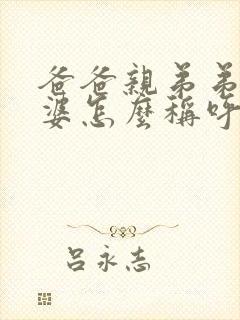 爸爸親弟弟
婆怎麼稱呼
呂永志